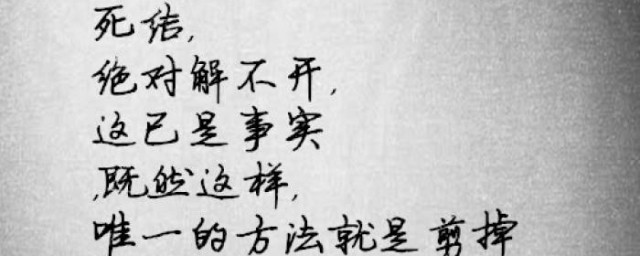 死结,
绝对解不开,
这已是事实
,既然这样,
唯一的方法就是剪掉